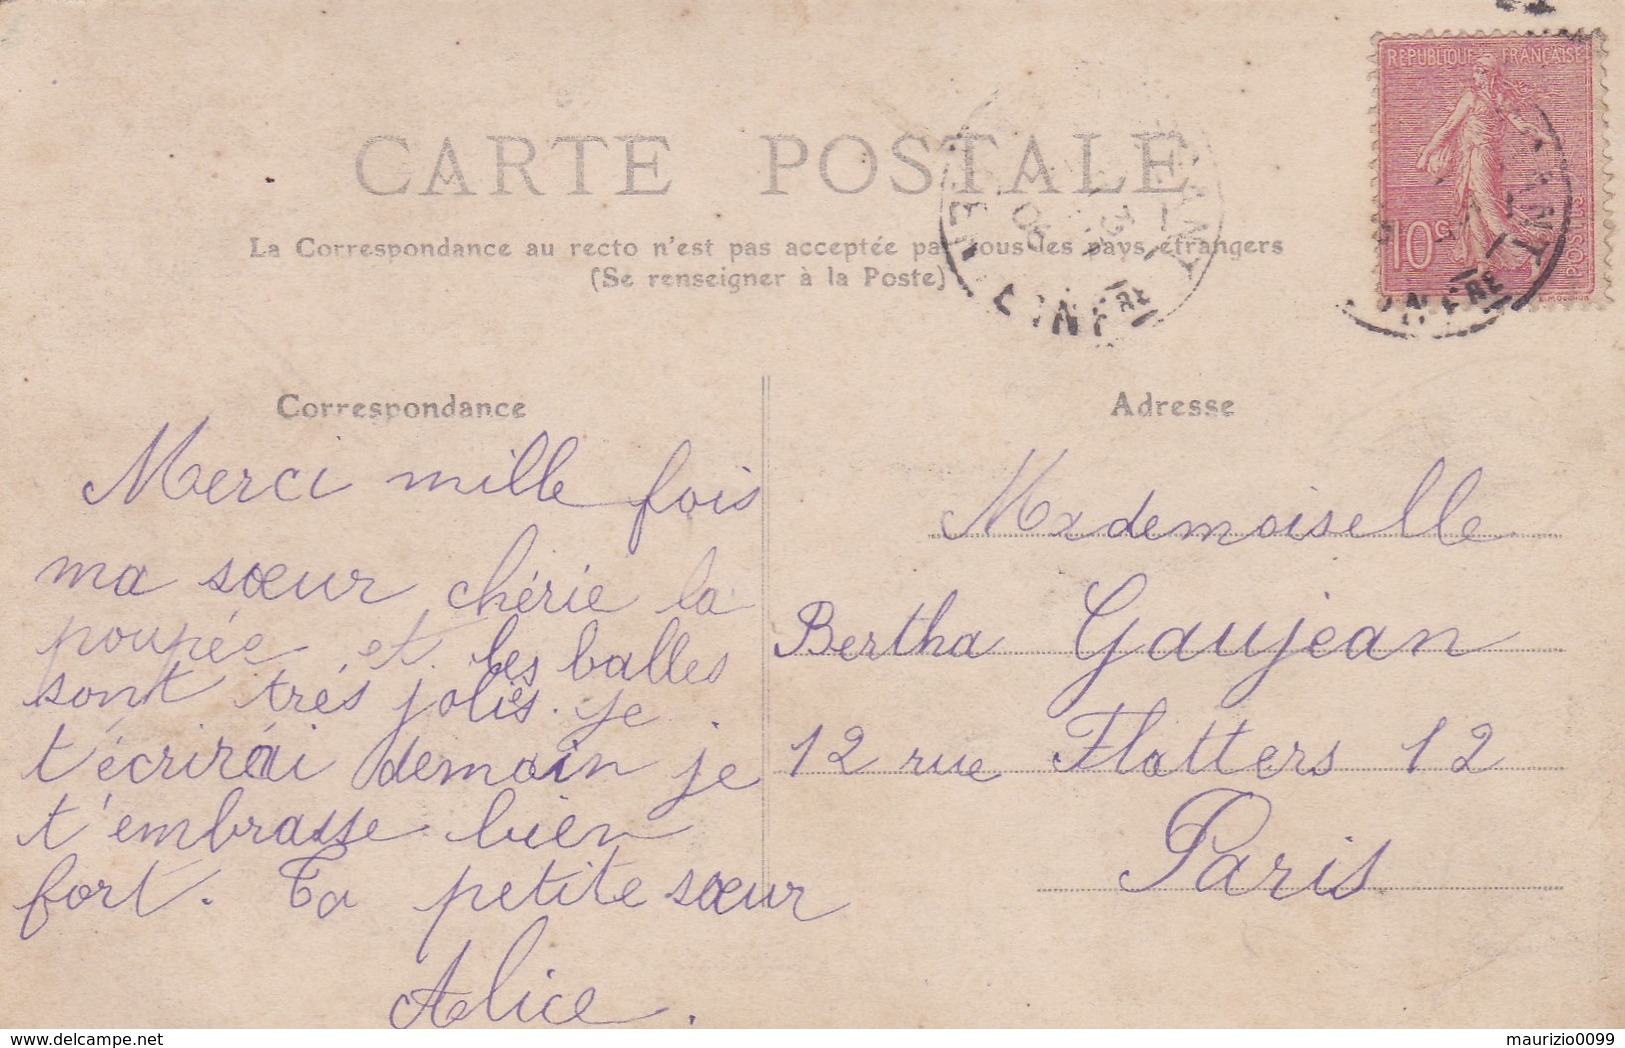 RÉPUBLIQUE FRANÇAISE
10c
POSTES
CARTE POSTALE
La Correspondance au recto n'est pas acceptée par tous les pays étrangers
(Se renseigner à la Poste)
Correspondance
Merci mille fois
ma sœur chérie la
poupée et les balles
sont très jolies. je
t'écrirai demain je
t'embrasse bien
fort. Ta petite sœur
Alice.
Adresse
Mademoiselle
Bertha Gaujean
12 rue Flatters 12
Paris
delcampe.net
maurizio0099